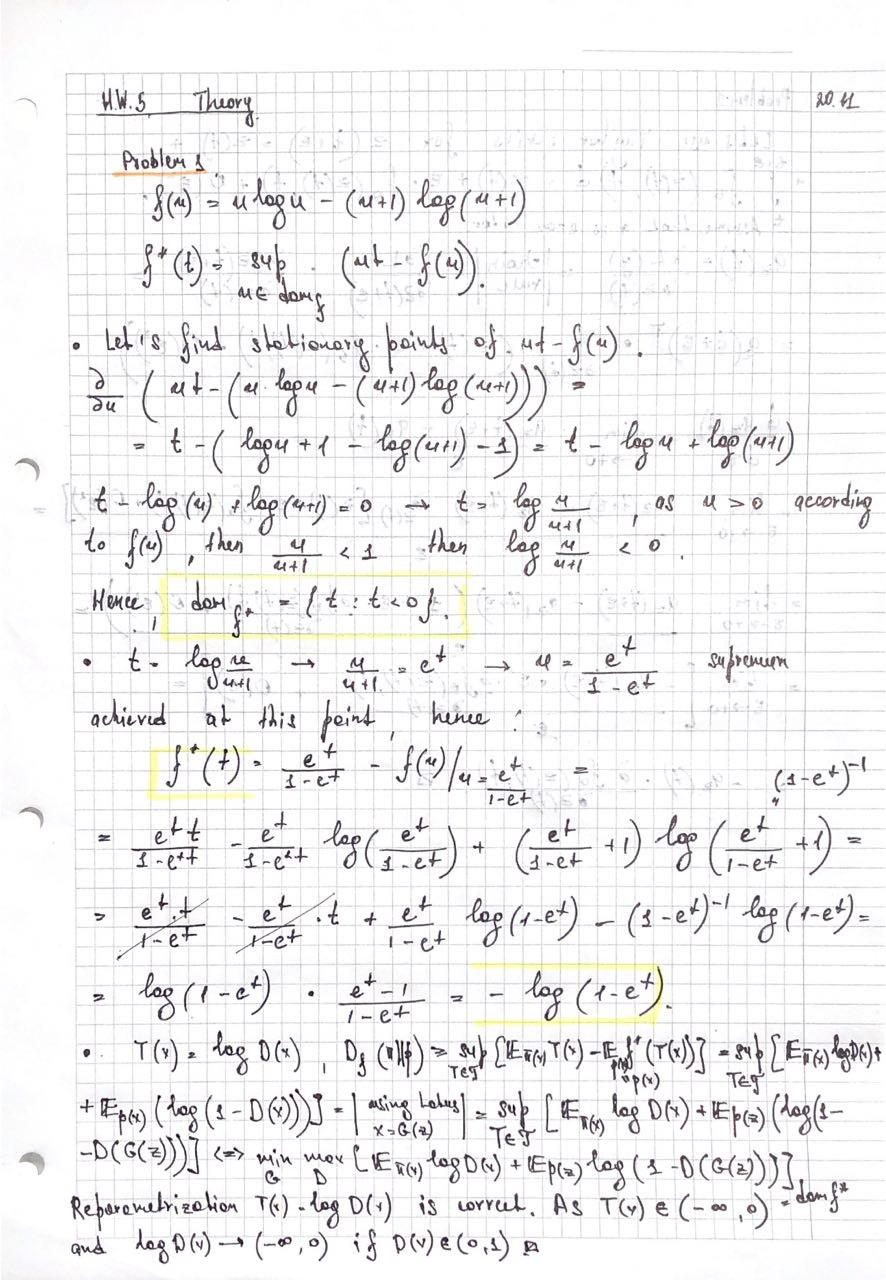 H.W.5 Theory 20.11
Problem 1
f(u) = u log u − (u+1) log(u+1)
f*(t) = sup_{u∈ dom_f} (ut − f(u)).
• Let's find stationary points of ut − f(u).
∂/∂u (ut − (u·log u − (u+1) log(u+1))) =
= t − (log u + 1 − log(u+1) − 1) = t − log u + log(u+1)
t − log(u) + log(u+1) = 0 → t = log u/(u+1), as u > 0 according
to f(u), then u/(u+1) < 1 then log u/(u+1) < 0.
Hence, dom_{f*} = {t : t < 0}.
• t = log u/(u+1) → u/(u+1) = e^t → u = e^t/(1−e^t) supremum
achieved at this point, hence:
f*(t) = e^t/(1−e^t) − f(u)|_{u = e^t/(1−e^t)} = (1−e^t)^{-1}
= e^t t/(1−e^t) − e^t/(1−e^t) log(e^t/(1−e^t)) + (e^t/(1−e^t) + 1) log(e^t/(1−e^t) + 1) =
= e^t·t/(1−e^t) − e^t/(1−e^t)·t + e^t/(1−e^t) log(1−e^t) − (1−e^t)^{-1} log(1−e^t) =
= log(1−e^t) · (e^t−1)/(1−e^t) = − log(1−e^t).
• T(x) = log D(x), D_f(π||p) = sup_{T∈𝒯} [𝔼_{π(x)} T(x) − 𝔼_{p(x)} f*(T(x))] = sup_{T∈𝒯} [𝔼_{π(x)} log D(x) +
+ 𝔼_{p(x)} (log(1−D(x)))] = | using Lotus x=G(z) | = sup_{T∈𝒯} [𝔼_{π(x)} log D(x) + 𝔼_{p(z)} (log(1−
−D(G(z)))] <=> min_G max_D [𝔼_{π(x)} log D(x) + 𝔼_{p(z)} log(1−D(G(z)))]
Reparametrization T(x) = log D(x) is correct. As T(x) ∈ (−∞, 0) = dom f*
and log D(x) → (−∞, 0) if D(x) ∈ (0,1)